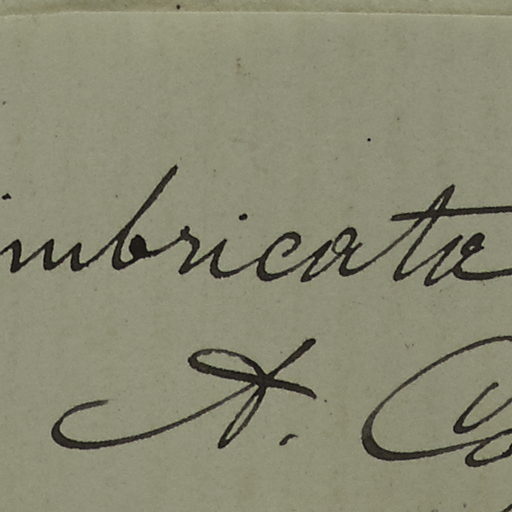 imbricata
A. C